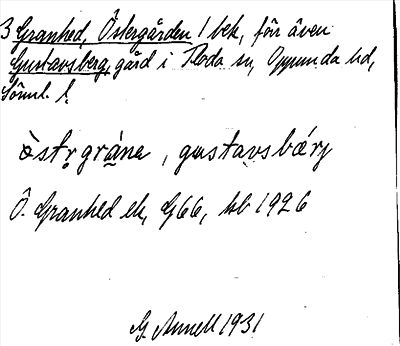 3 Granhed, Östergården 1 bek, för även
Gustavsberg, gård i Floda sn, Oppunda hd,
Sörml. l.
östr̥grána, gustavsbærj
Ö. Granhed ek, G66, hb 1926
G. Annell 1931